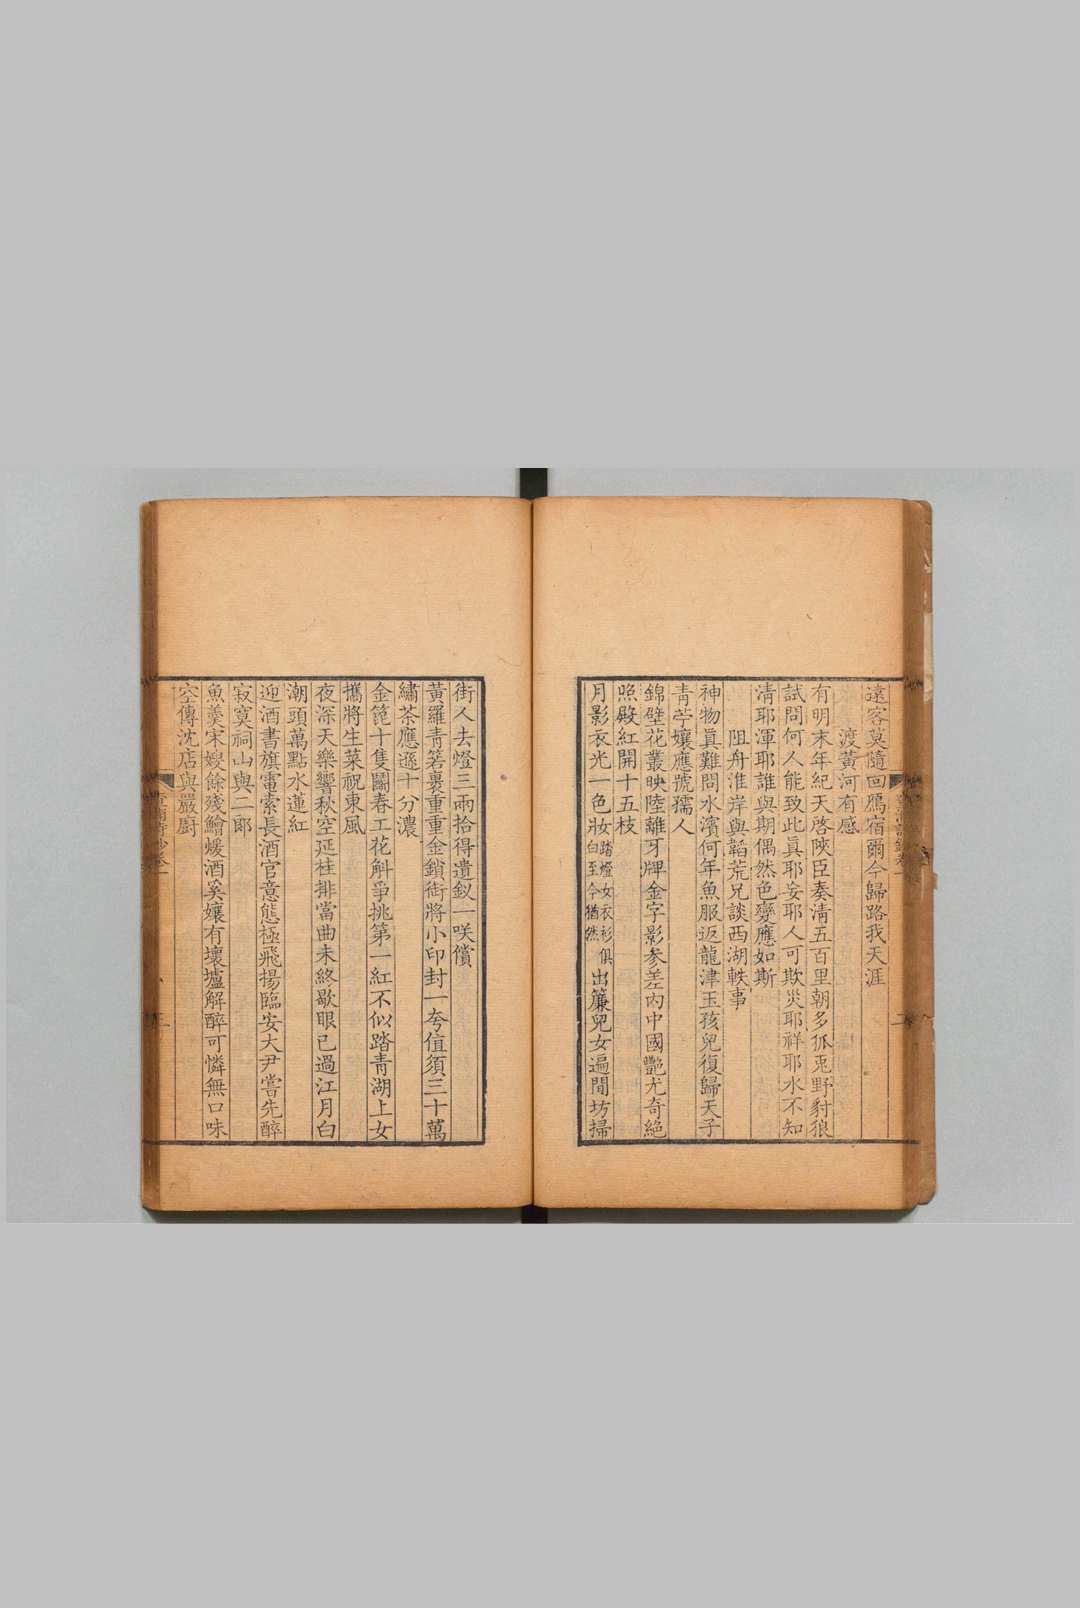 遠客莫隨回鴈宿爾今歸路我天涯
渡黃河有感
有明末年紀天啓陝臣奏清五百里朝多狐兎野豺狼
試問何人能致此眞耶妄耶人可欺災耶祥耶水不知
清耶渾耶誰與期偶然色變應如斯
阻舟淮岸與韜荒兄談西湖軼事
神物眞難問水濱何年魚服返龍津玉孩兒復歸天子
青苧孃應號孺人
錦壁花叢映陸離牙牌金字影參差內中國艷尤奇絕
照殿紅開十五枝
月影衣光一色妝踏燈女衣衫俱白至今猶然出簾兒女遍閒坊掃
街人去燈三兩拾得遺釵一咲償
黃羅青箬裹重重金鎖銜將小印封一夸值須三十萬
繡茶應遜十分濃
金篦十隻鬭春工花斛爭挑第一紅不似踏青湖上女
攜將生菜祝東風
夜深天樂響秋空延桂排當曲未終歇眼已過江月白
潮頭萬點水蓮紅
迎酒書旗雷索長酒官意態極飛揚臨安大尹嘗先醉
寂寞祠山與二郎
魚羹宋嫂餘殘鱠煖酒奚孃有壞壚解醉可憐無口味
空傳沈店與嚴廚